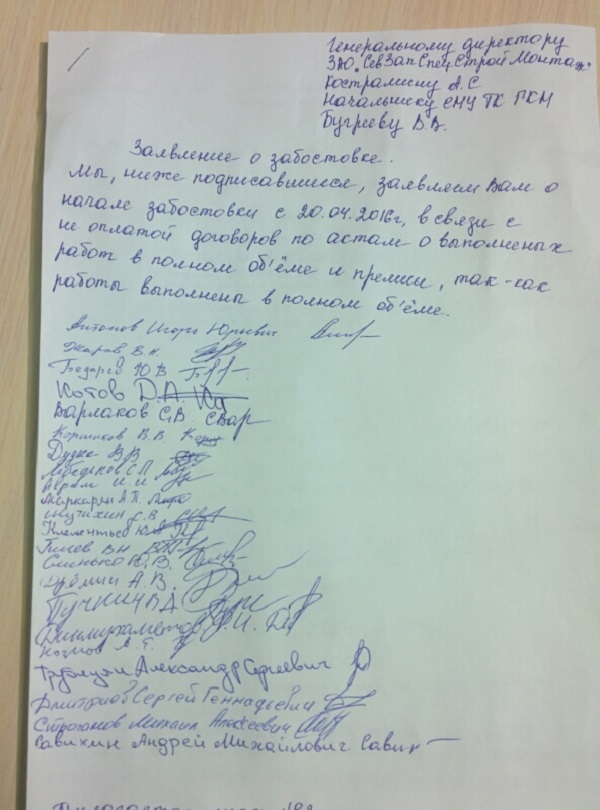 Генеральному директору
ЗАО "СевЗапСпецСтройМонтаж"
Кострамину А.С
Начальнику СМУ ТК ПКМ
Бугрееву В.В.
Заявление о забостовке.
Мы, ниже подписавшиеся, заявляем Вам о
начале забостовки с 20.04.2016г, в связи с
не оплатой договоров по актам о выполненых
работ в полном об'ёме и премии, так-как
работы выполнены в полном об'ёме.
Антонов Игорь Юриевич
Жаров В.Н.
Ю.В
Котов Д.А.
Варлаков С,В. СВар
Коршиков В.В. Кор
Дудко В.В
Лебедьков С.П.
Абрам И.И
Маркарян А.П.
Шутихин С.В
Клементьев Ю.
Гилев ВН
Синько Ю.В.
Ерёмин А.В.
Пучнин В.Д
Динмухаметов Р.И.
Козлов А.
Александр Сергеевич
Дмитриов Сергей Геннадьевич
Строганов Михаил Алексеевич
Савихин Андрей Михайлович Савих